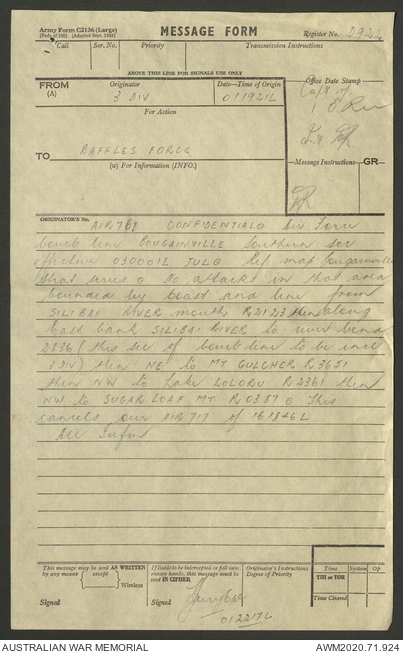 Army Form C2136 (Large)
(Pads of 100) (Adapted Sept. 1942)
MESSAGE FORM
Register No. 2922
Call Ser. No. Priority Transmission Instructions
ABOVE THIS LINE FOR SIGNALS USE ONLY
FROM
(A)
Originator
3 DIV
Date—Time of Origin
011921L
Office Date Stamp
For Action
TO
RAFFLES FORCE
(W) For Information (INFO.)
Message Instructions GR
ORIGINATOR'S No.
AIR 767 CONFIDENTIAL o Air Force
bomb line BOUGAINVILLE Southern sec
effective 030001L JUL o Ref map Bougainville
strat series o No attacks in that area
bounded by coast and line from
SILIBAI RIVER mouth R2123 then along
East bank SILIBAI RIVER to river bend
2836 (this sec of bomb line to be incl
3 DIV) then NE to MT GULCHER R3651
then NW to Lake LOLORU R2361 then
NW to SUGAR LOAF MT R0387 o This
cancels our AIR 717 of 161846L
All Infm
This message may be sent AS WRITTEN
by any means { except
} Wireless
Signed
If liable to be intercepted or fall into
enemy hands, this message must be
sent IN CIPHER
Signed
012217L
Originator's Instructions
Degree of Priority
Time System Op
THI or TOR
Time Cleared
AUSTRALIAN WAR MEMORIAL
AWM2020.71.924